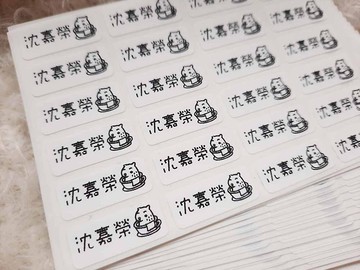 沈嘉榮 沈嘉榮 沈嘉榮
沈嘉榮 沈嘉榮 沈嘉榮 沈嘉榮
沈嘉榮 沈嘉榮 沈嘉榮 沈嘉榮
沈嘉榮 沈嘉榮 沈嘉榮 沈嘉榮
沈嘉榮 沈嘉榮 沈嘉榮 沈嘉榮
沈嘉榮 沈嘉榮 沈嘉榮
沈嘉榮